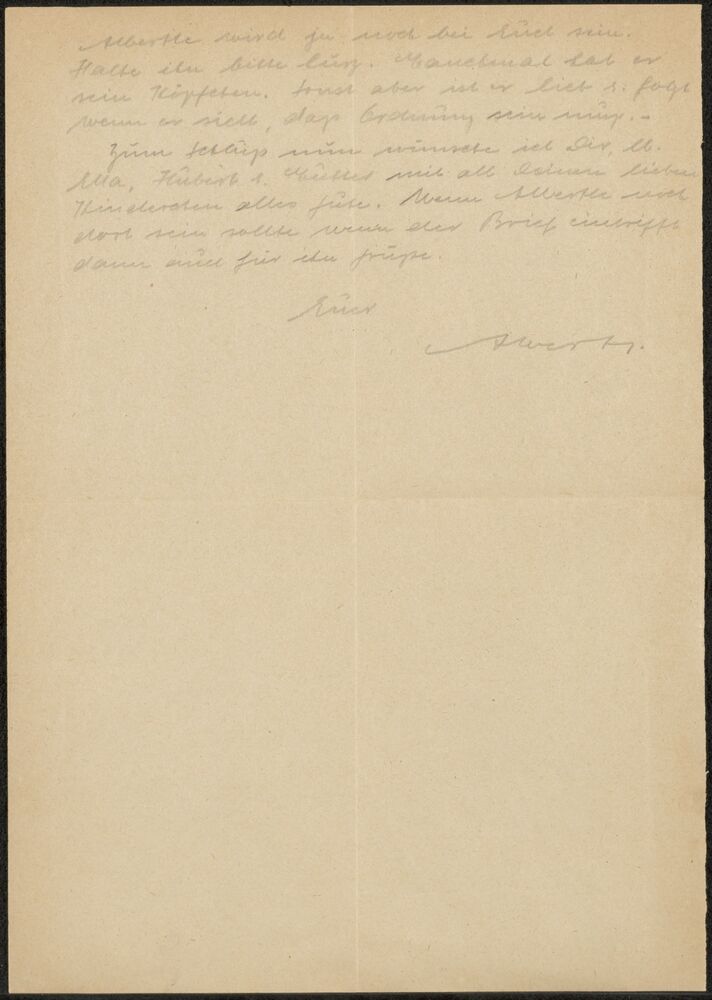 Albertle wird ja noch bei Euch sein.
Halte ihn bitte kurz. Manchmal hat er
sein Köpfchen. Sonst aber ist er lieb u. folgt
wenn er sieht, dass Ordnung sein muss. -
Zum Schluss nun wünsche ich Dir, lb.
Ella, Hubert u. Mutter mit all Deinen lieben
Kinderchen alles Gute. Wenn Albertle noch
dort sein sollte wenn der Brief eintrifft
dann auch für ihn Grüsse.
Euer
Albert.